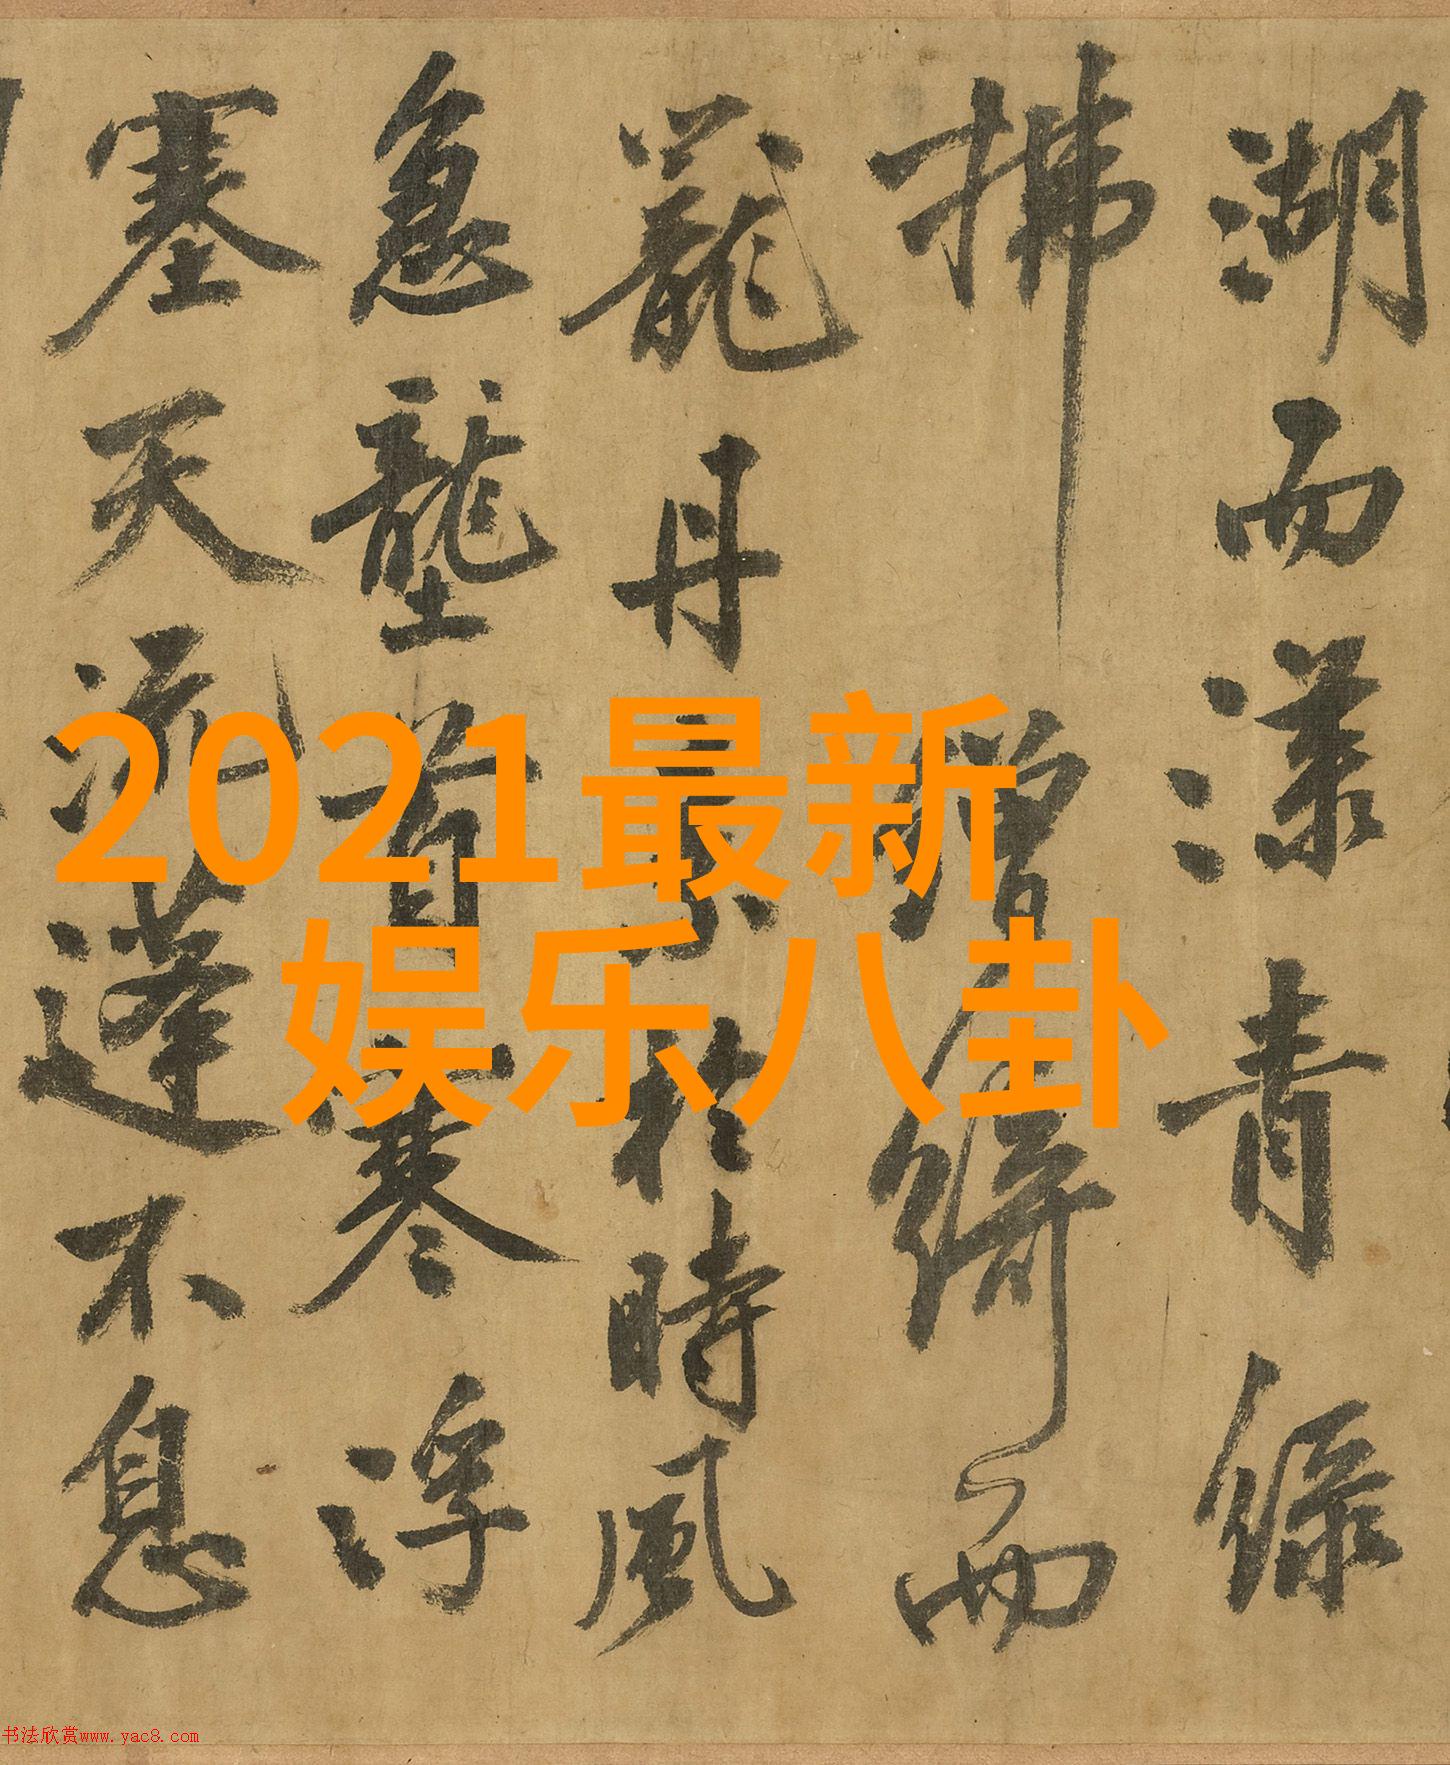 湖而漾青綠
拂 繒綺而
蘢丹 於時風
急壟首寒浮
塞天流蓬不息
2021最新
娱乐八卦
书法欣赏www.yac8.com